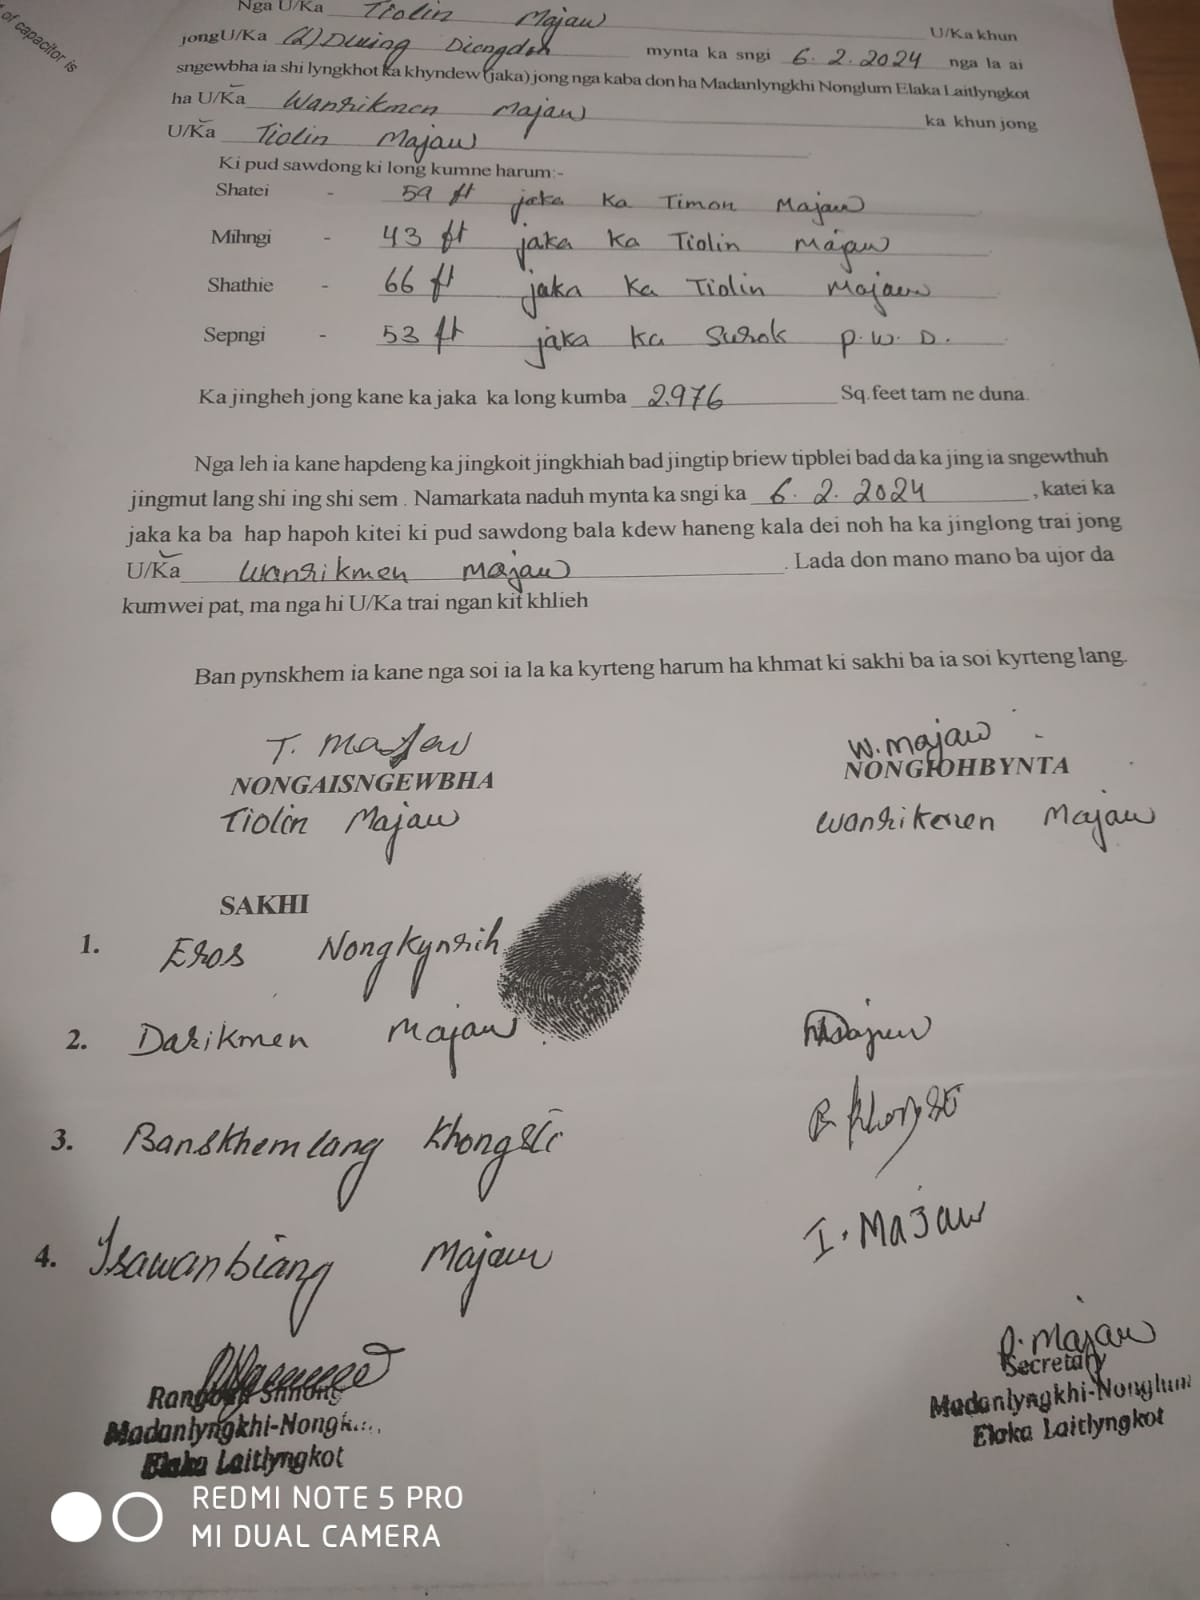 of capacitor is
Nga U/Ka Tiolin Majaw U/Ka khun
jongU/Ka (L) Dining Diengdoh mynta ka sngi 6.2.2024 nga la ai
sngewbha ia shi lyngkhot ka khyndew (jaka) jong nga kaba don ha Madanlyngkhi Nonglum Elaka Laitlyngkot
ha U/Ka Wanrikmen Majaw ka khun jong
U/Ka Tiolin Majaw
Ki pud sawdong ki long kumne harum:-
Shatei - 59 ft jaka Ka Timon Majaw
Mihngi - 43 ft jaka Ka Tiolin Majaw
Shathie - 66 ft jaka Ka Tiolin Majaw
Sepngi - 53 ft jaka Ka Surok P.W.D.
Ka jingheh jong kane ka jaka ka long kumba 2976 Sq.feet tam ne duna.
Nga leh ia kane hapdeng ka jingkoit jingkhiah bad jingtip briew tipblei bad da ka jing ia sngewthuh
jingmut lang shi ing shi sem . Namarkata naduh mynta ka sngi ka 6.2.2024 , katei ka
jaka ka ba hap hapoh kitei ki pud sawdong bala kdew haneng kala dei noh ha ka jinglong trai jong
U/Ka Wanrikmen Majaw . Lada don mano mano ba ujor da
kumwei pat, ma nga hi U/Ka trai ngan kit khlieh
Ban pynskhem ia kane nga soi ia la ka kyrteng harum ha khmat ki sakhi ba ia soi kyrteng lang.
T. Majaw W. Majaw
NONGAISNGEWBHA NONGIOHBYNTA
Tiolin Majaw Wanrikmen Majaw
SAKHI
1. Eros Nongkynrih
2. Darikmen Majaw
3. Banskhemlang Khongsti B Khongsti
4. Isawanbiang Majaw I. Majaw
P. Majaw
Rangbah Shnong Secretary
Madanlyngkhi-Nong Madanlyngkhi-Nonglum
Elaka Laitlyngkot Elaka Laitlyngkot
REDMI NOTE 5 PRO
MI DUAL CAMERA